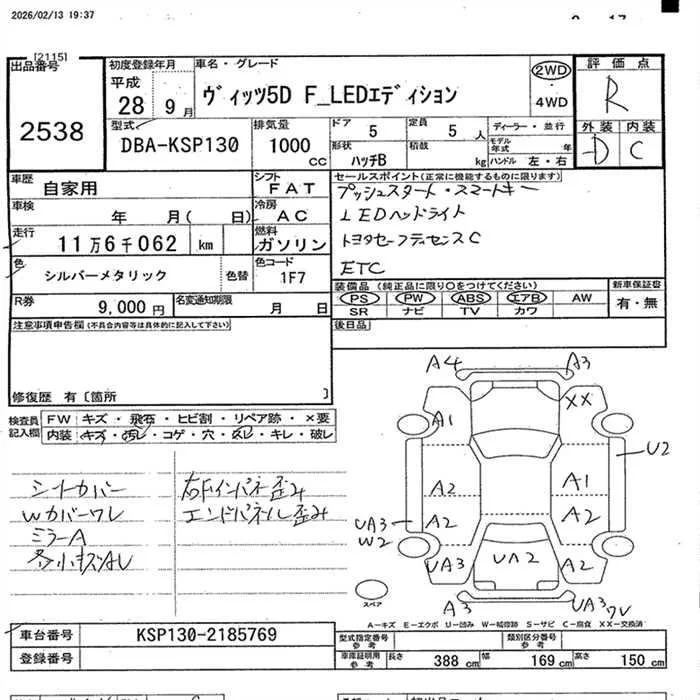 2026/02/13 19:37
[2115]
出品番号
2538
初度登録年月
平成
28 9月
車名・グレード
ヴィッツ5D F_LEDエディション
2WD
・
4WD
評価点
R
外装 内装
D C
型式
DBA-KSP130
排気量
1000
CC
ドア 5
定員 5 人
形状 ハッチB
積載 kg
ディーラー・並行
モデル年式 年
ハンドル 左・右
車歴
自家用
シフト
FAT
車検
年 月( 日)
冷房
AC
走行
11万6千062 km
燃料
ガソリン
色
シルバーメタリック
色替
色コード
1F7
R券
9,000 円
名変通知期限
月 日
セールスポイント(正常に機能するものに限ります)
プッシュスタート・スマートキー
LEDヘッドライト
トヨタセーフティセンスC
ETC
装備品 (純正品に限り○をつけてください)
PS PW ABS エアB AW
SR ナビ TV カワ
新車保証書
有・無
後日品
注意事項申告欄(不具合内容等は具体的に記入して下さい)
修復歴 有〔箇所 〕
検査員
記入欄
FW キズ・飛石・ヒビ割・リペア跡・×要
内装 キズ・汚レ・コゲ・穴・スレ・キレ・破レ
シートカバー
Wカバーワレ
ミラーA
各小キズAU
右Fインパネ歪み
エンドパネル歪み
A4
A3
A1
XX
U2
A2
A1
A2
A2
UA3
W2
UA3
UA2
A2
A3
UA3
スペア
A-キズ E-エクボ U-凹み W-補修跡 S-サビ C-腐食 XX-交換済
車台番号
KSP130-2185769
登録番号
型式指定番号
参考
類別区分番号
参考
車庫証明用
参考
長さ 388 cm
幅 169 cm
高さ 150 cm